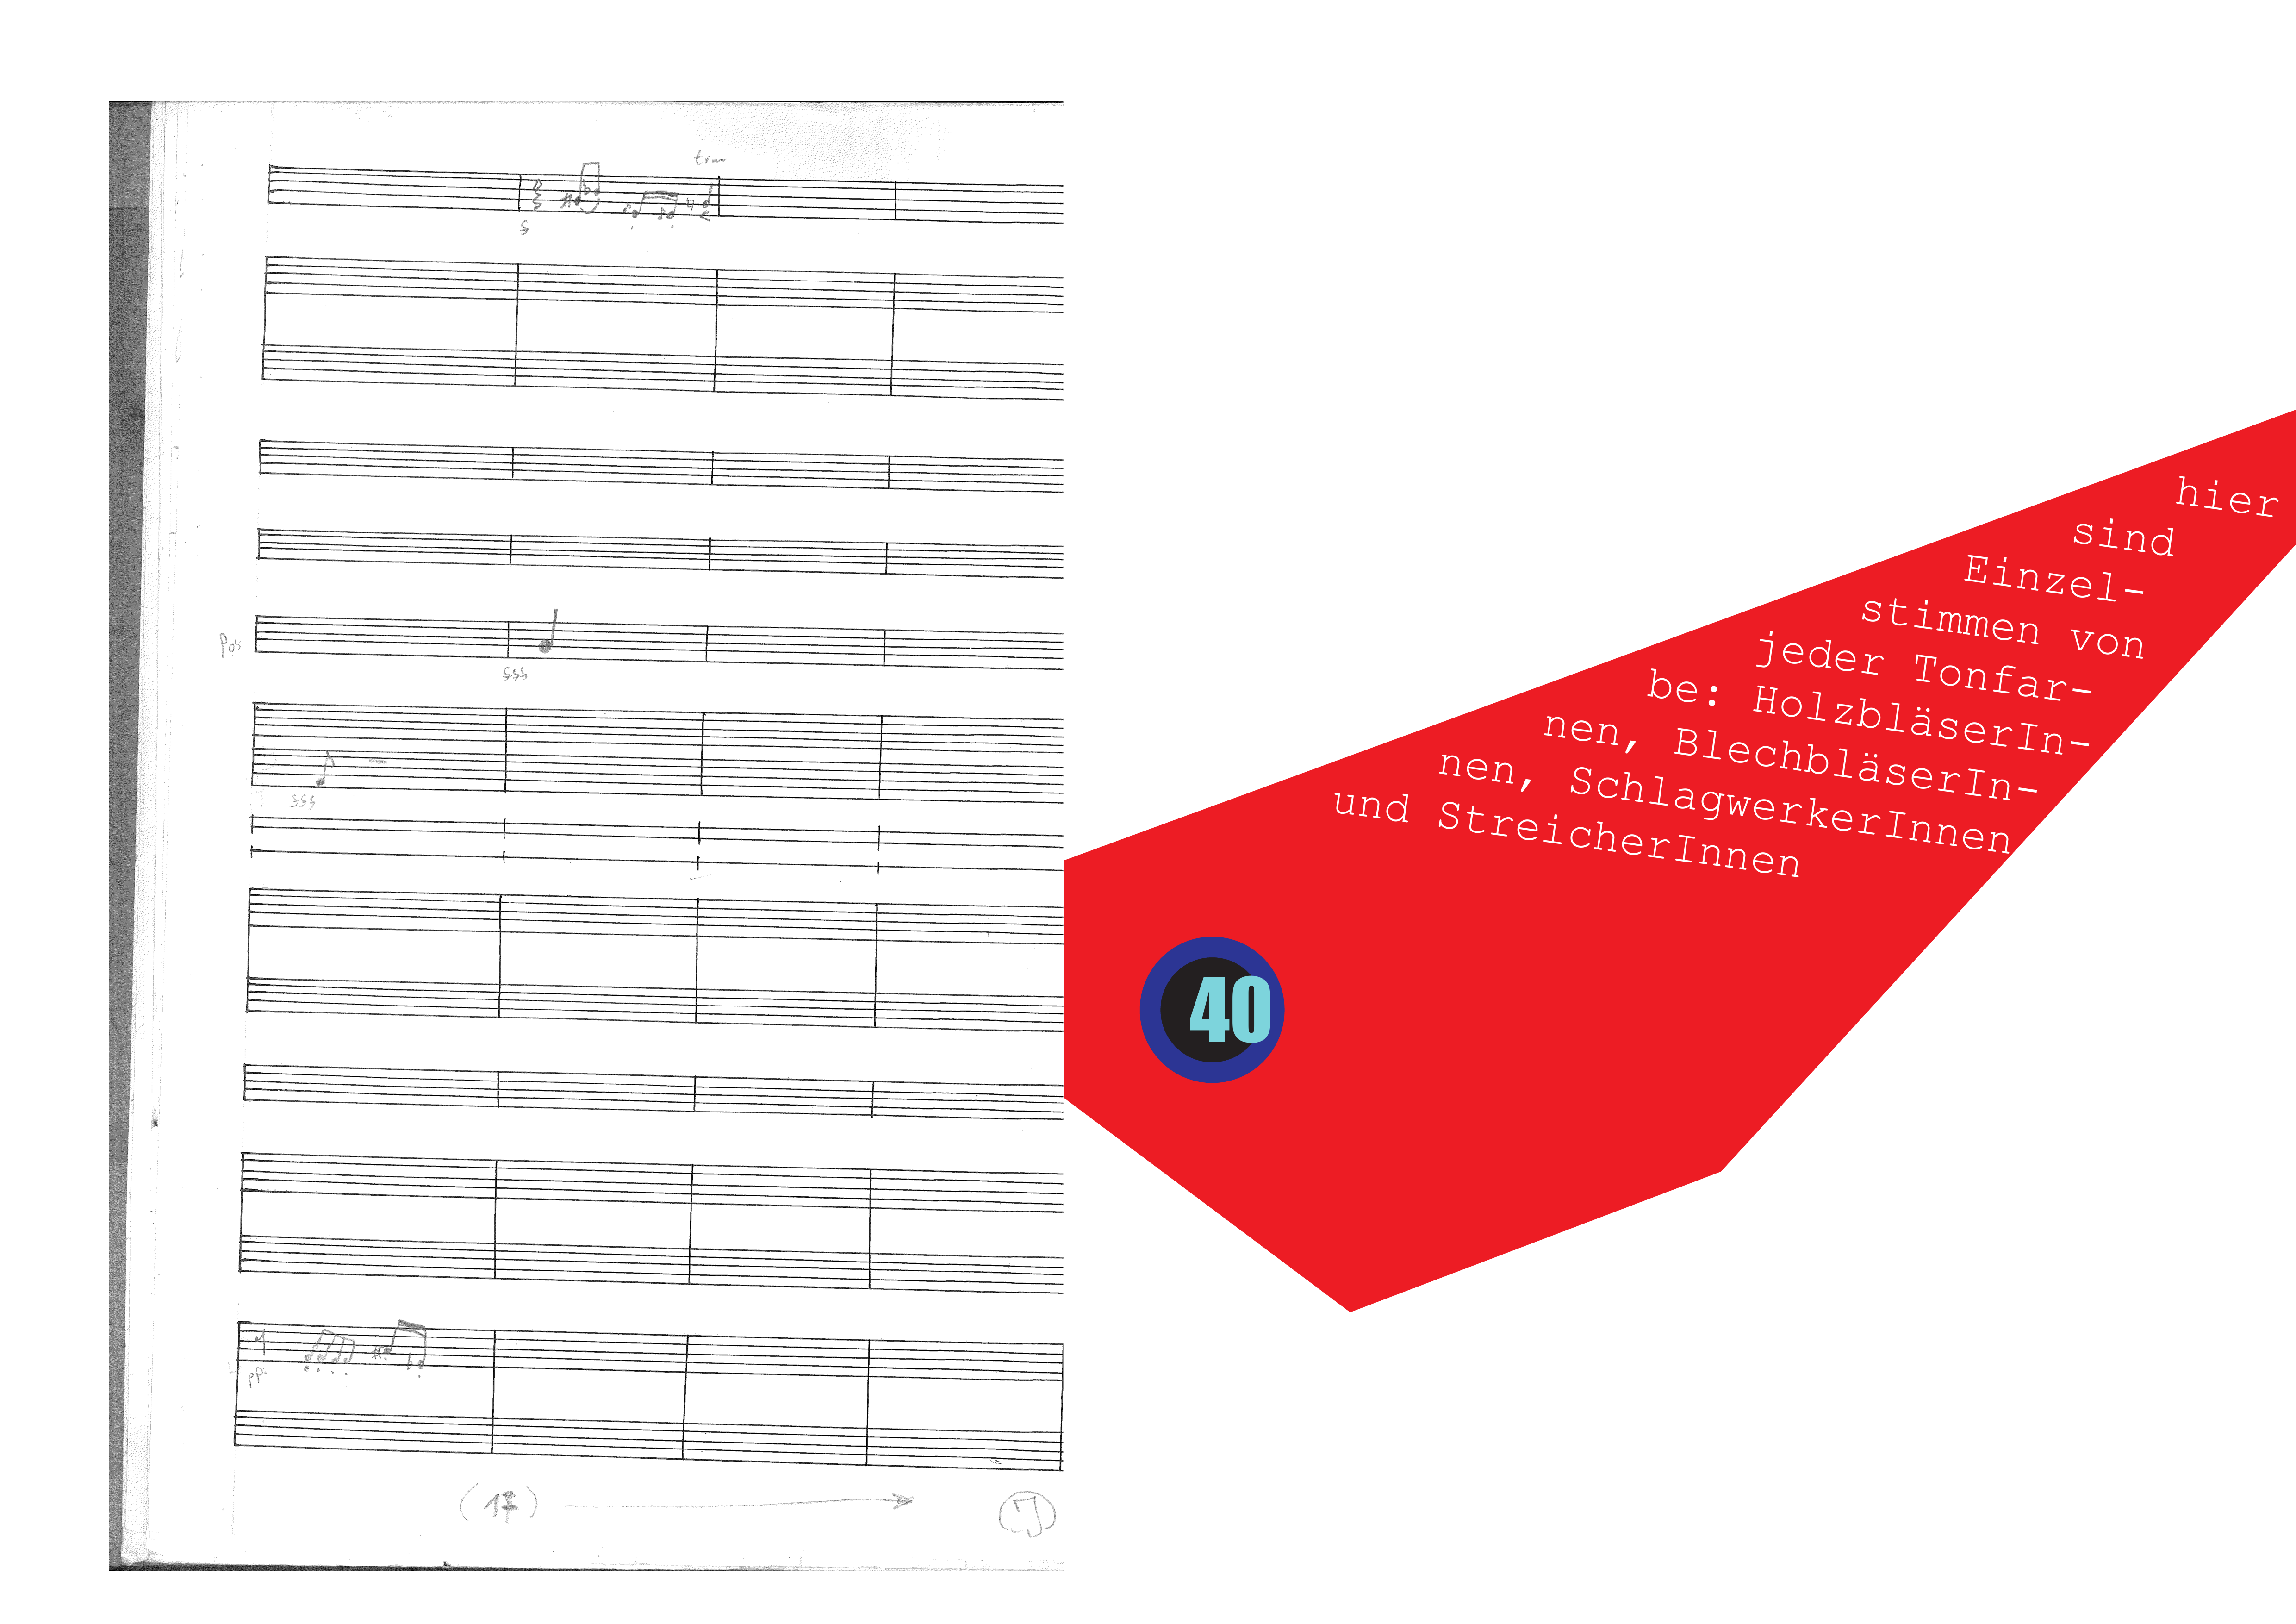 trm
Pos
pp.
(17)
hier
sind
Einzel-
stimmen von
jeder Tonfar-
be: HolzbläserIn-
nen, BlechbläserIn-
nen, SchlagwerkerInnen
und StreicherInnen
40